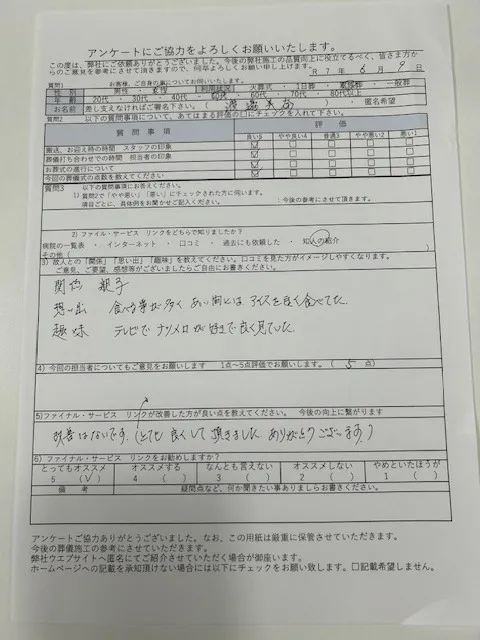 アンケートにご協力をよろしくお願いいたします。
この度は、弊社にご依頼ありがとうございました。今後の弊社施工の品質向上に役立てるべく、皆さま方か
らのご意見を参考にさせて頂きますので、何卒よろしくお願い申し上げます。 R 7 年 6 月 9 日
質問1 お客様、ご自身の事についてお伺いいたします。
性別 男性 ・ 女性 利用状況 火葬式 ・ 1日葬 ・ 家族葬 ・ 一般葬
年齢 20代 ・ 30代 ・ 40代 ・ 50代 ・ 60代 ・ 70代 ・ 80代以上
お名前 差し支えなければご署名下さい。( ) ・ 匿名希望
質問2 以下の質問事項について、あてはまる評価の口にチェックを入れて下さい。
質問事項 評価
良い5 やや良い4 普通3 やや悪い2 悪い1
搬送、お迎え時の時間 スタッフの印象 ☑ □ □ □ □
葬儀打ち合わせでの時間 担当者の印象 ☑ □ □ □ □
お葬式の進行について ☑ □ □ □ □
今回の葬式の点数を教えてください ☑ □ □ □ □
質問3 以下の質問事項にお答えください。
1) 質問2で「やや悪い」「悪い」にチェックされた方に伺います。
項目ごとに、具体例をお聞かせご記入ください。 :今後の参考にさせて頂きます。
2) ファイル・サービス リンクをどちらで知りましたか?
病院の一覧表 ・ インターネット ・ 口コミ ・ 過去にも依頼した ・ 知人の紹介
その他( )
3) 故人との「関係」「思い出」「趣味」を教えてください。口コミを見た方がイメージしやすくなります。
ご意見、ご要望、感想等がございましたらご自由にお書きください。
関係 親子
思い出 食べる事が多く あい間には アイスを良く食べてた。
趣味 テレビで ナツメロが好きで良く見ていた。
4) 今回の担当者についてもご意見をお願いします 1点～5点評価でお願いします。( 5 点)
5)ファイナル・サービス リンクが改善した方が良い点を教えてください。 今後の向上に繋がります
改善はないです。(とても良くして頂きました ありがとうございます)
6) ファイナル・サービス リンクをお勧めしますか?
とってもオススメ オススメする なんとも言えない オススメしない やめといたほうが
5 (✓) 4 ( ) 3 ( ) 2 ( ) 1 ( )
備考 疑問点など、何か聞きたい事ありましらお書きください。
アンケートご協力ありがとうございました。なお、この用紙は厳重に保管させていただきます。
今後の葬儀施工の参考にさせていただきます。
弊社ウエブサイトへ匿名にてご紹介させていただく場合が御座います。
ホームページへの記載を承知頂けない場合には以下にチェックをお願い致します。□記載希望しません。